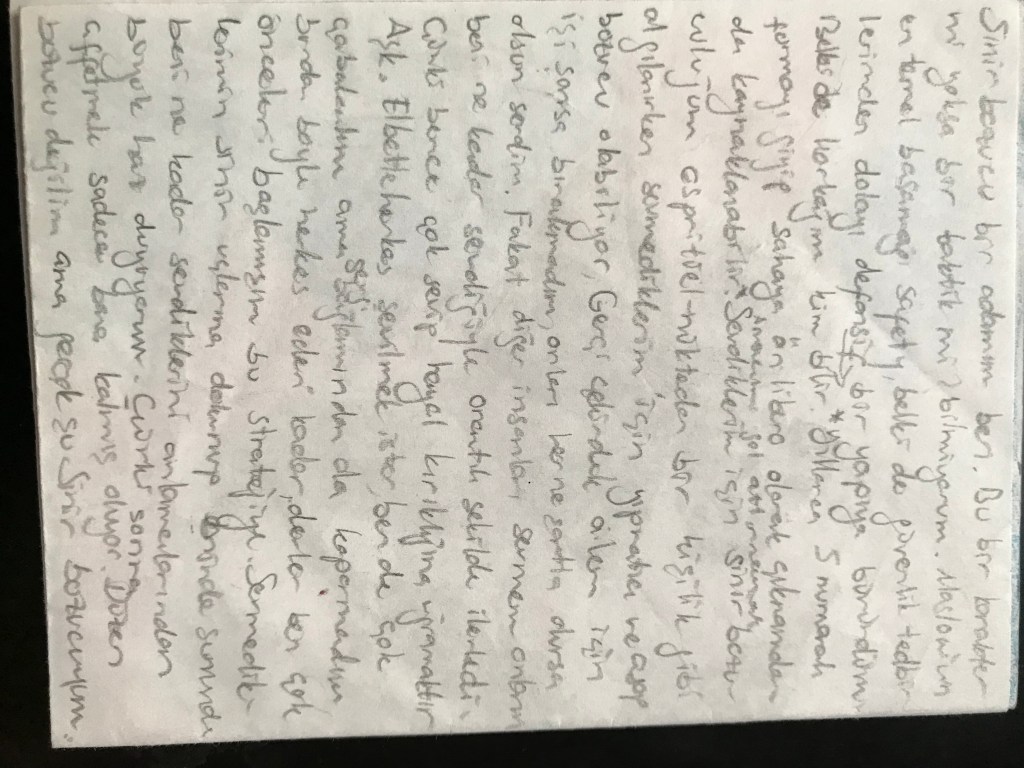 Sinir bozucu bir adamım ben. Bu bir karakter
mi yoksa bir taktik mi bilmiyorum. Maslow'un
en temel basamağı safety, belki de güvenlik tedbir
lerimden dolayı defansif bir yapıya büründüm
Belki de korkağım kim bilir. *yıllarca 5 numaralı
formayı giyip sahaya ön libero olarak çıkmamdan
da kaynaklanabilir* amacım gol attırmamak
Sevdiklerim için sinir bozu
culuğum espritüel-nüktedan bir kişilik gibi
algılanırken sevmediklerim için yıpratıcı ve asap
bozucu olabiliyor. Gerçi çekirdek ailem için
işi şansa bırakmadım, onları her ne şartta olursa
olsun sevdim. Fakat diğer insanları sevmem onların
beni ne kadar sevdiğiyle orantılı şekilde ilerledi.
Çünkü bence çok sevip hayal kırıklığına uğramaktır
Aşk. Elbette herkes sevilmek ister, ben de çok
çabaladım ama sevgi sağlamından da koparmadım
böyle herkes ederi kadar, derler ben çok
önceleri başlamışım bu stratejiye. Sevmedik
lerimin sinir uçlarına dokunup önünde sonunda
beni ne kadar sevdiklerini anlamalarından
büyük haz duyuyorum. Çünkü sonra
affetmek sadece bana kalmış oluyor. Düzen
bozucu değilim ama gerçek şu Sinir bozucuyum.